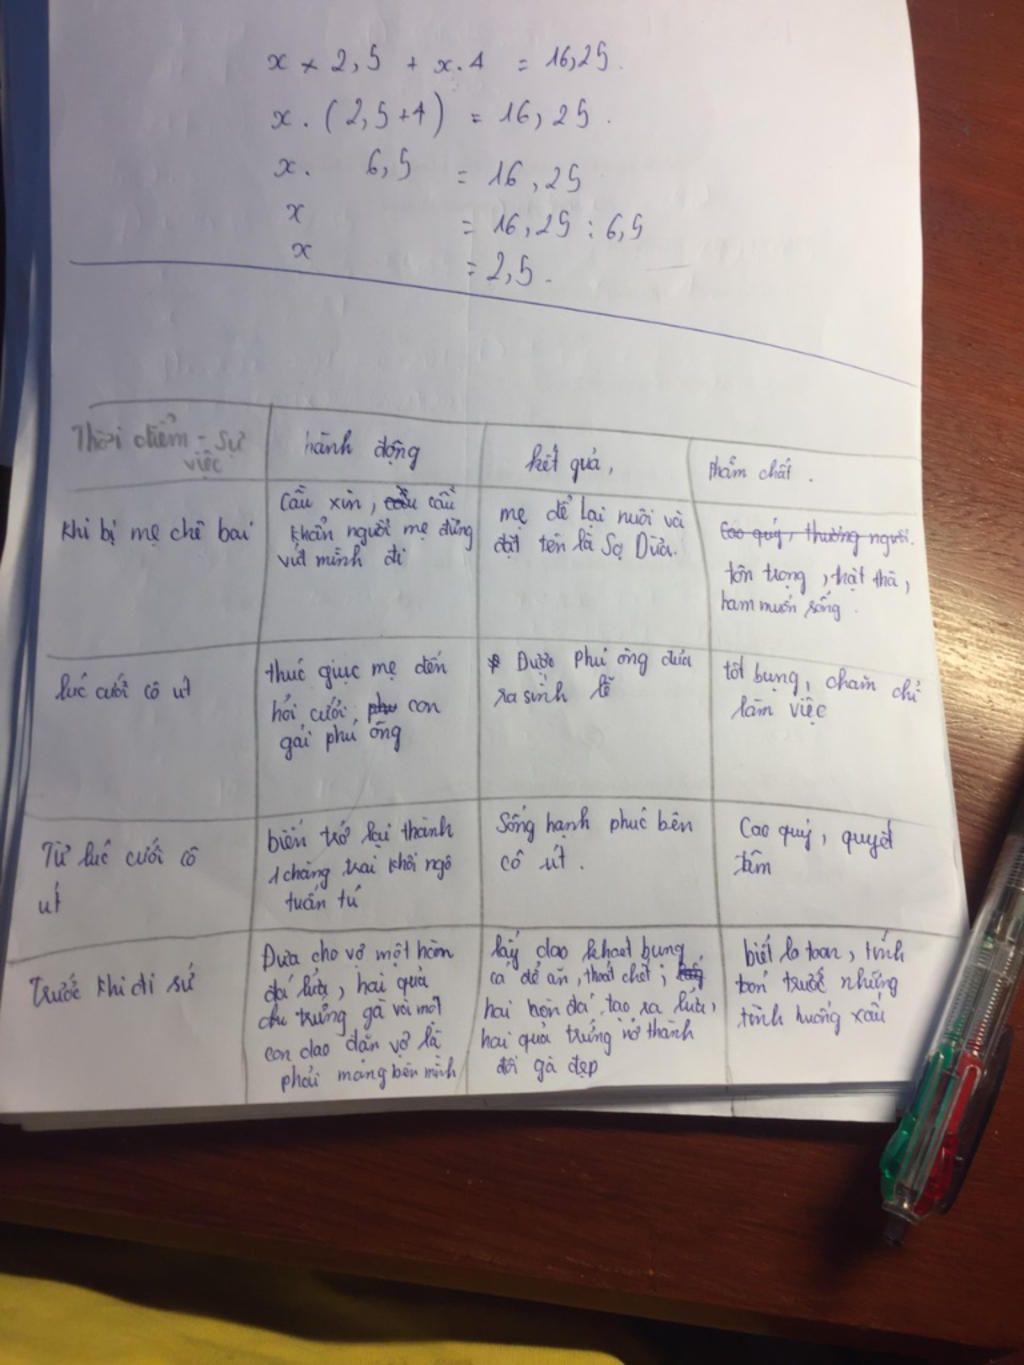 x × 2,5 + x.4 = 16,25.
x. (2,5+4) = 16,25.
x. 6,5 = 16,25
x = 16,25 : 6,5
x = 2,5.
Thời điểm - Sự
việc
hành động
kết quả,
phẩm chất.
Khi bị mẹ chê bai
Cầu xin, cầu cầu
khẩn người mẹ đừng
vứt mình đi
mẹ để lại nuôi và
đặt tên là Sọ Dừa.
Cao quý, thương người.
tôn trọng, thật thà,
ham muốn sống.
lúc cưới cô út
thúc giục mẹ đến
hỏi cưới phu con
gái phú ông
Được Phú ông đưa
ra sính lễ
tốt bụng, chăm chỉ
làm việc
Từ lúc cưới cô
út
biến trở lại thành
1 chàng trai khôi ngô
tuấn tú
Sống hạnh phúc bên
cô út.
Cao quý, quyết
tâm
Trước khi đi sứ
Đưa cho vợ một hòn
đá lửa, hai quả
trứng gà và một
con dao dặn vợ là
phải mang bên mình
lấy dao khoét bụng
cá để ăn, thoát chết;
hai hòn đá tạo ra lửa,
hai quả trứng nở thành
đôi gà đẹp
biết lo toan, tính
toán trước những
tình huống xấu